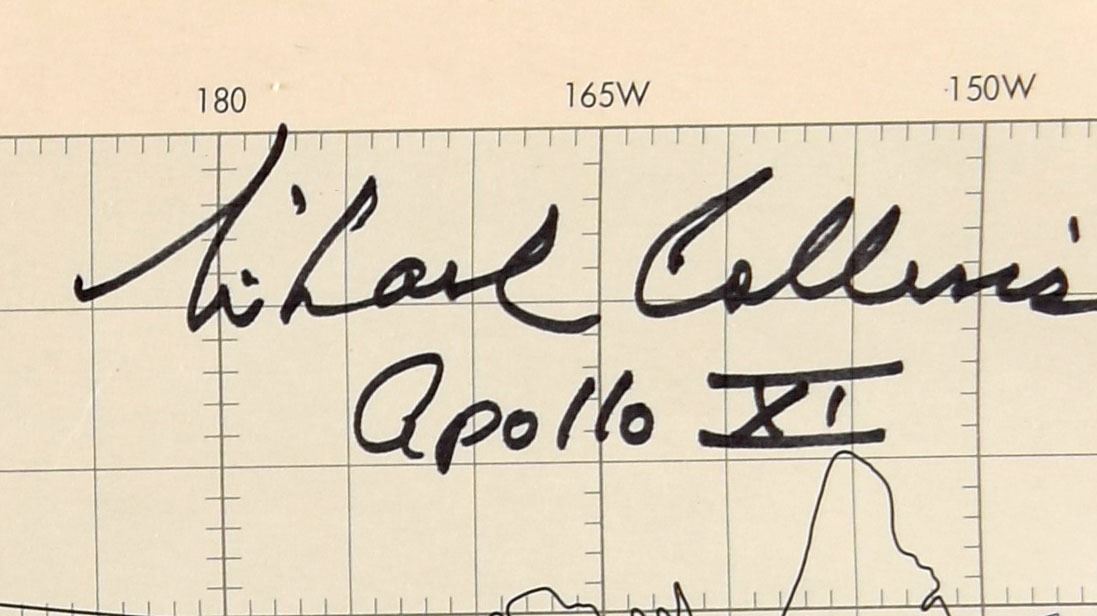 180 165W 150W
Michael Collins
Apollo XI